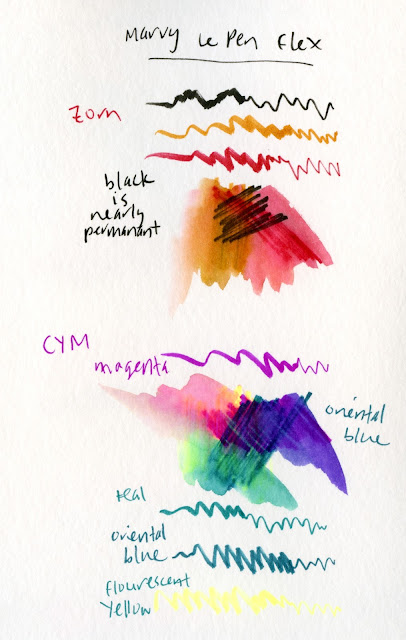 Marvy Le Pen Flex
Zorn
black
is
nearly
permanant
CYM
magenta
oriental
blue
teal
oriental
blue
flourescent
Yellow